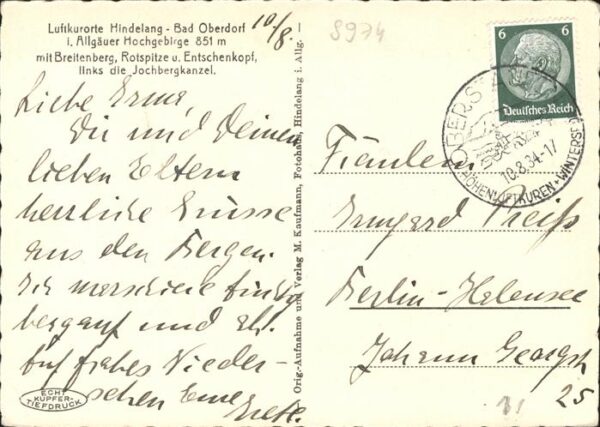 Luftkurorte Hindelang - Bad Oberdorf
i. Allgäuer Hochgebirge 851 m
mit Breitenberg, Rotspitze u. Entschenkopf,
links die Jochbergkanzel.
10/8.
S974
Liebe Erma,
Dir und Deinen
lieben Eltern
herzliche Grüsse
aus den Bergen.
Ich marschiere
bergauf und ab.
Auf frohes Wieder-
sehen Eure
Grete.
ECHT
KUPFER-
TIEFDRUCK
Orig.-Aufnahme und Verlag M. Kaufmann, Fotohaus, Hindelang i. Allg.
6 6
Deutsches Reich
10.8.34-17
HÖHENLUFTKUREN · WINTERSP
Fräulein
Irmgard Preiß
Berlin-Halensee
Johann Georgstr
25